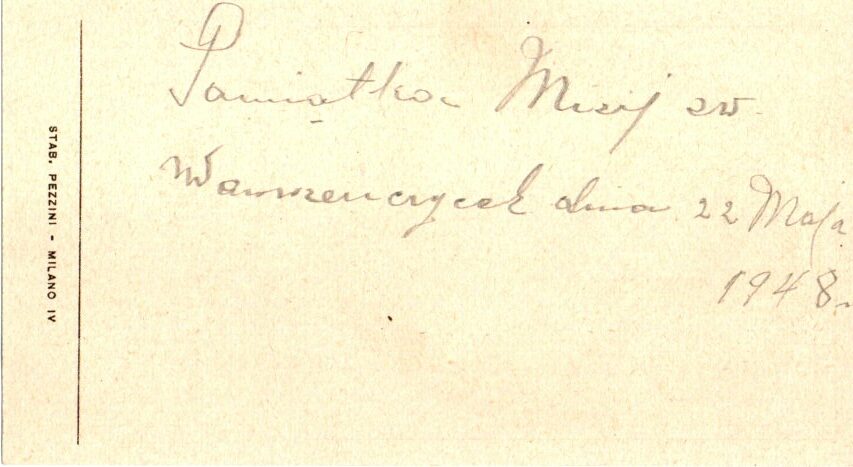 STAB. PEZZINI - MILANO IV
Pamiątka Misij sw.
Wawrzenczycek dnia 22 Maja
1948.